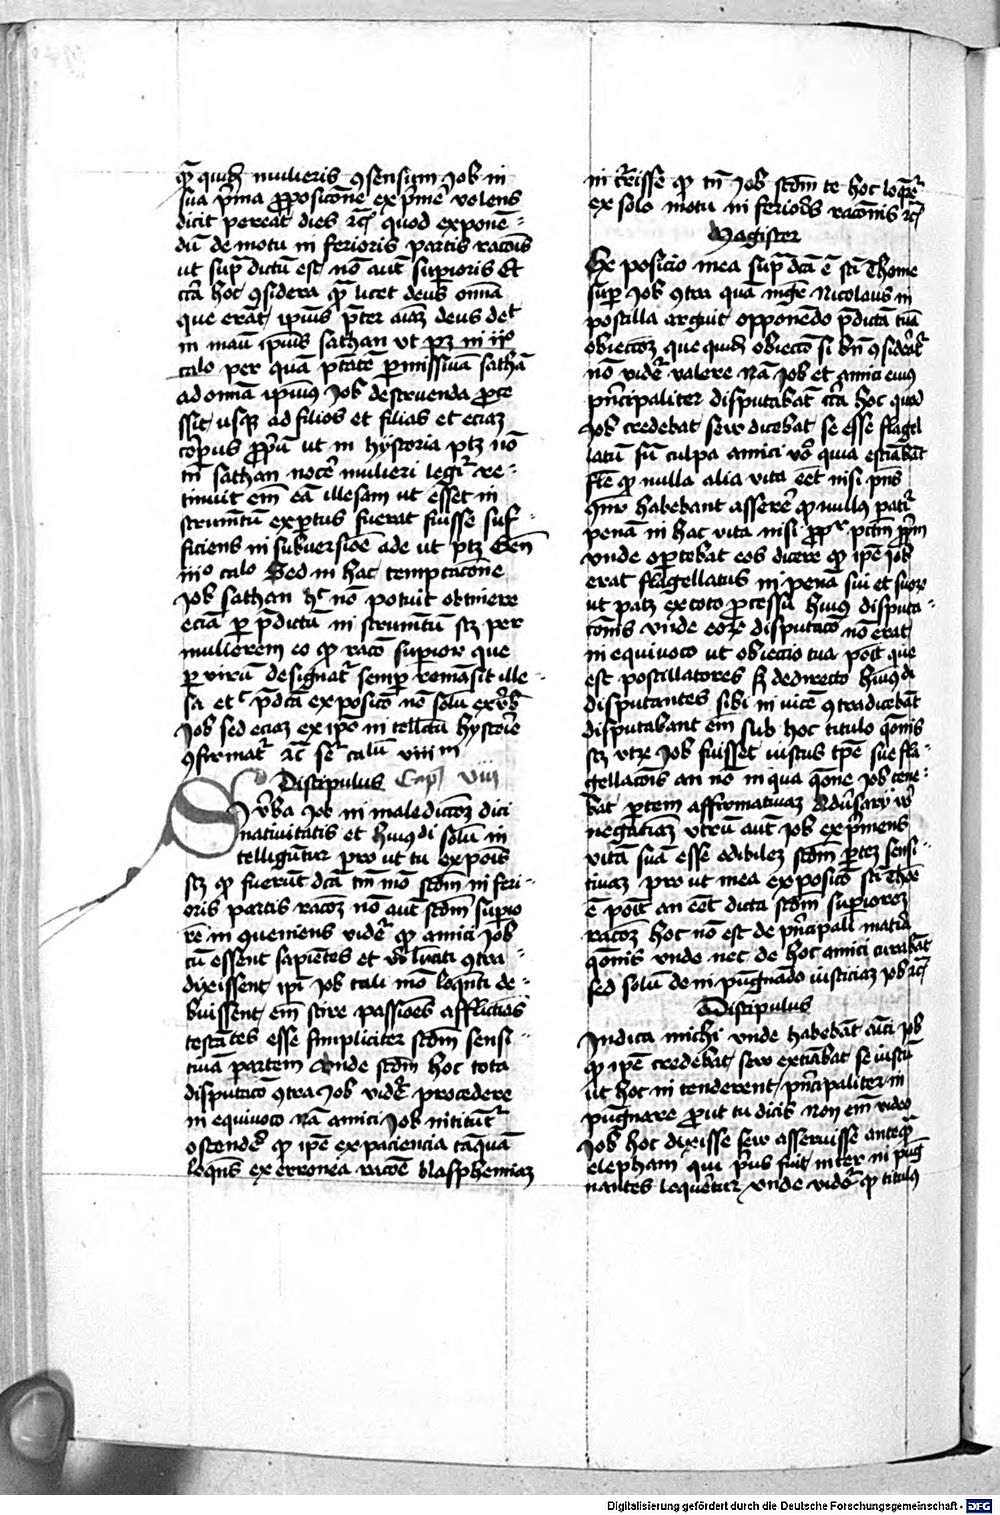 qͣ quidē mulieris ꝯsensum Job in
sua p̄ma ꝓposicōne exp̄mē volens
dicit pereat dies rcͣ quod exponē-
dū de motu in ferioris partis racōis
ut sup̄ dictū est nō aut̄ suꝑioris Et
cͣ hoc ꝯsidera qͣ licet deus om̄ia
que erāt ip̄ius p̄ter aīaȝ deus det
in manu ip̄ius sathan vt pȝ in iiº
calo per quā p̄tatē ꝑmissiuā sathā
ad om̄ia ip̄ius Job destruenda ꝓce
ssit usqȝ ad filios et filias et eciaȝ
corpus ꝓpͥū ut in hystoria ptȝ nō
tn̄ sathan nocē mulieri legit̄ re-
tinuit em̄ eā illesam ut esset in
strumētū exꝑtus fuerat fuisse suf-
ficiens in subuersiōe ade ut ptȝ Gen̄
iiiº calo Sed in hac temptacōne
Job sathan hͨ nō potuit obtinere
eciā ꝑ p̄dictū in strumētū scȝ per
mulierem eo ꝙ racō suꝑior que
ꝑ virū designat̄ semꝑ remāsit ille-
sa et p̄dcā exposicō nō solū ex v̄bis
Job sed eciaȝ ex ip̄o in tellctū hystorie
ꝯfirmat̄ calm̄ viii m
Discipulus Cap viii
Si v̄ba Job in maledictōȝ dici
natiuitatis et huiꝰ di solū in
telligūtur pro ut tu expoīs
scȝ ꝙ fuerūt dcā tm̄ mō scdm̄ in feri-
oris partis racōȝ nō aut̄ scdm̄ suꝑio
rē in queniens vidē ꝙ amici Job
cū essent sapiētes et ꝯtra-
dixissent ip̄i Job tali mō loqn̄ti de-
buissent em̄ scire passiones afflictiōis
testātes esse simpliciter scdm̄ sensi-
tiuā partem vnde scdm̄ hoc tota
disputacō ꝯtra Job vidē procedere
in equiuoco Nā amici Job nitūt̄
ostendē ꝙ ip̄e ex paciencia tāquā
loqn̄s ex erronea racōe blasphemiaȝ
in cͥrisse ꝙ tn̄ Job scdm̄ te hoc loqͥt̄
ex solo motu in feriōis racōnis rcͣ
Magister
Ex posicio mea sup̄ dcā ē scī Thome
suꝑ Job ꝯtra quā mgr̄ Nicolaus in
postilla arguit opponēdo p̄dictā tuā
obiectōȝ que quidē obiectō si bn̄ ꝯsiderēt̄
nō vidē valere Nā Job et amici eius
pͥncipaliter disputabāt cͣ hoc quod
Job credebat seu dicebat se esse flagel
latū sn̄ culpa amici vº quia estiābāt
ꝙ nulla alia vita eēt nisi pn̄s
hͦ habebant asserē ꝙ nullus patit̄
penā in hac vita nisi ꝓp̄ pctm̄ ꝓpͥm
vnde oꝑtebat eos dicere ꝙ ip̄e Job
erat flagellatus in penā sui et suoꝝ
ut patȝ ex toto ꝓcessu huiꝰ disputa-
cōnis vnde eoꝝ disputacō nō erat
in equiuoco ut obiectio tua poīt que
est postillatores sꝫ dedirecto huiꝰ di
disputantes sibi in uicē ꝯtradicebāt
disputabant em̄ sub hoc titulo qōnis
scȝ vtꝝ Job fuisset iustus tꝑe sue fla-
gellacōis an nō in qua qōne Job tene-
bat ꝑtem affirmatiuaȝ Adūsarij vº
negatiaȝ vtrū aut̄ Job exp̄mens
vitā suā esse odibilēȝ scdm̄ ꝑteȝ sensi-
tiuaȝ pro ut mea exposicō scī Thōe
ē poīt an eēt dicta scdm̄ suꝑioreȝ
racōȝ hoc nō est de pͥncipali matīa
qōnis vnde nec de hoc amici curabāt
sed solū de in pugnādo iusticiaȝ Job rcͣ
Discipulus
Indica michi vnde habebāt aīci Job
ꝙ ip̄e credebat seu extiābat se iustū
ut hoc in tenderent pͥncipaliter in
pugnare ꝓut tu dicis Non em̄ video
Job hoc dixisse seu asseruisse anteqͣ
elepham qui pͥus fuit inter in pug
nantes loquēretur vnde vidēr ꝙ titulus
Digitalisierung gefördert durch die Deutsche Forschungsgemeinschaft - DFG